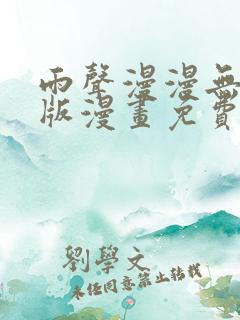 雨聲漫漫無
版漫畫免費
劉學文
未任同意禁止轉載